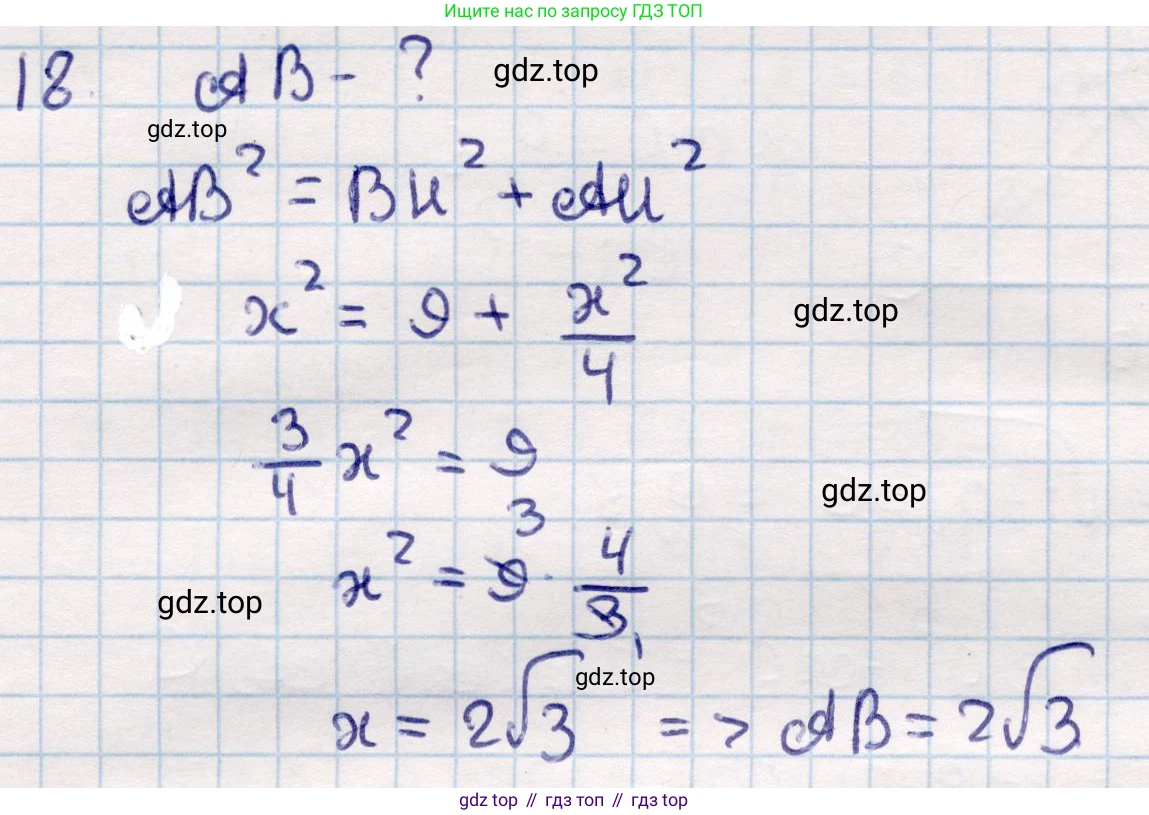 Ищите нас по запросу ГДЗ ТОП
18. AB - ?
gdz.top
gdz.top
AB² = BH² + AH²
x² = 9 + x²/4
gdz.top
3/4 x² = 9
gdz.top
x² = 9 3 · 4/3 1
gdz.top
gdz.top
x = 2√3 => AB = 2√3
gdz top // гдз топ // gdz top